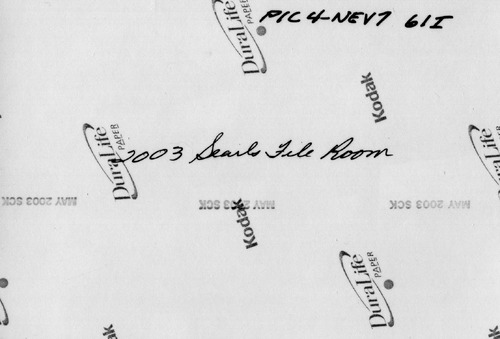 PIC4-NEV7 61I
DuraLife
PAPER
Kodak
DuraLife
PAPER
2003 Searls File Room
MAY 2003 SCK
MAY 2003 SCK
MAY 2003 SCK
Kodak
DuraLife
PAPER